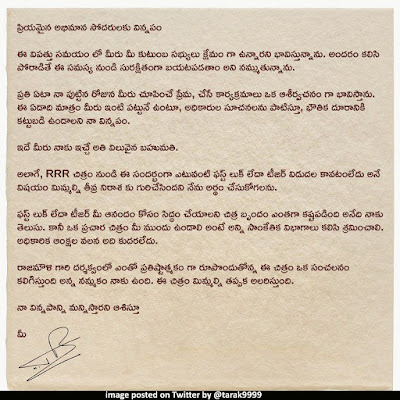 ప్రియమైన అభిమాన సోదరులకు విన్నపం
ఈ విపత్తు సమయం లో మీరు మీ కుటుంబ సభ్యులు క్షేమం గా ఉన్నారని భావిస్తున్నాను. అందరం కలిసి
పోరాడితే ఈ సమస్య నుండి సురక్షితంగా బయటపడతాం అని నమ్ముతున్నాను.
ప్రతి ఏటా నా పుట్టిన రోజున మీరు చూపించే ప్రేమ, చేసే కార్యక్రమాలు ఒక ఆశీర్వచనం గా భావిస్తాను.
ఈ ఏడాది మాత్రం మీరు ఇంటి పట్టునే ఉంటూ, అధికారుల సూచనలను పాటిస్తూ, భౌతిక దూరానికి
కట్టుబడి ఉండాలని నా విన్నపం.
ఇదే మీరు నాకు ఇచ్చే అతి విలువైన బహుమతి.
అలాగే, RRR చిత్రం నుండి ఈ సందర్భంగా ఎటువంటి ఫస్ట్ లుక్ లేదా టీజర్ విడుదల కావటంలేదు అనే
విషయం మిమ్మల్ని తీవ్ర నిరాశ కు గురిచేసిందని నేను అర్థం చేసుకోగలను.
ఫస్ట్ లుక్ లేదా టీజర్ మీ ఆనందం కోసం సిద్ధం చేయాలని చిత్ర బృందం ఎంతగా కష్టపడింది అనేది నాకు
తెలుసు. కానీ ఒక ప్రచార చిత్రం మీ ముందు ఉండాలి అంటే అన్ని సాంకేతిక విభాగాలు కలిసి శ్రమించాలి.
అధికారిక ఆంక్షల వలన అది కుదరలేదు.
రాజమౌళి గారి దర్శకత్వంలో ఎంతో ప్రతిష్టాత్మకం గా రూపొందుతోన్న ఈ చిత్రం ఒక సంచలనం
కలిగిస్తుంది అన్న నమ్మకం నాకు ఉంది. ఈ చిత్రం మిమ్మల్ని తప్పక అలరిస్తుంది.
నా విన్నపాన్ని మన్నిస్తారని ఆశిస్తూ
మీ
image posted on Twitter by @tarak9999